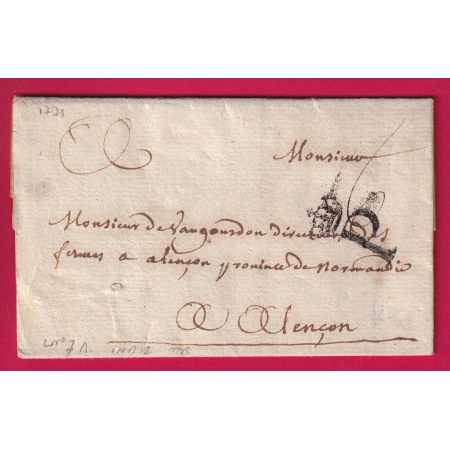 1771
Monsieur
6
P
Monsieur de Vaugourdon directeur des
fermes a alençon province de Normandie
A Alençon
7 A. IND 12 TTB